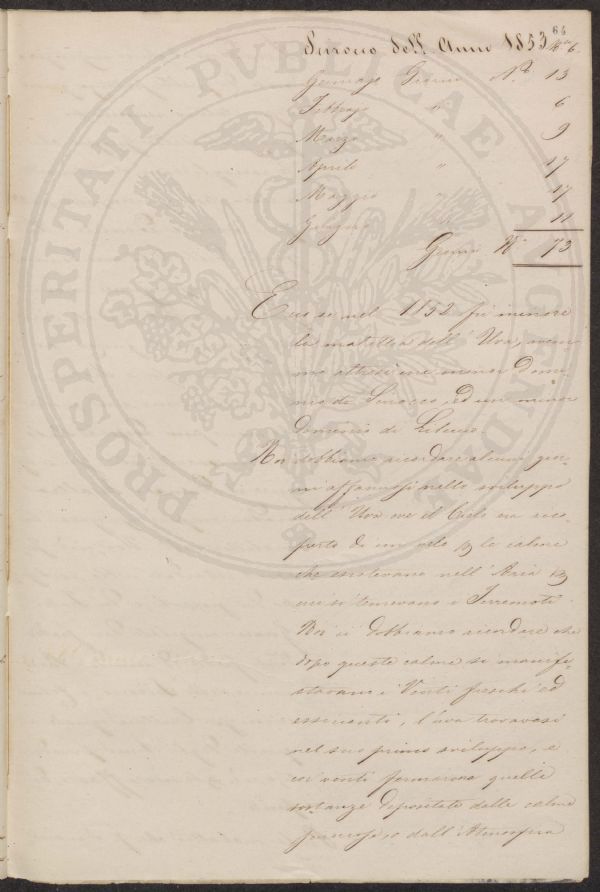 64
Scirocco dell' Anno 1853
Gennajo Giorni N.º 13
Febbrajo " 6
Marzo " 9
Aprile " 17
Maggio " 17
Giugno 11
Giorni N.º 73
Ecco se nel 1852 fu minore
la malattia dell' Uva, avem-
mo altresì un minor domi-
nio di Scirocco, ed un minor
dominio di Libeccio.
Noi dobbiamo ricordare alcuni gior-
ni affannosi nello sviluppo
dell' Uva ove il Cielo era rico-
perto di un velo per le calme
che esistevano nell' Aria per
cui si temevano i Terremoti.
Noi ci dobbiamo ricordare che
dopo queste calme si manife-
stavano i Venti freschi ed
essiccanti, l'uva trovavasi
nel suo primo sviluppo, e
coi venti formarono quelle
sostanze depositate dalle calme
, o dall' Atmosfera
PROSPERITATI PUBLICAE AUGENDAE